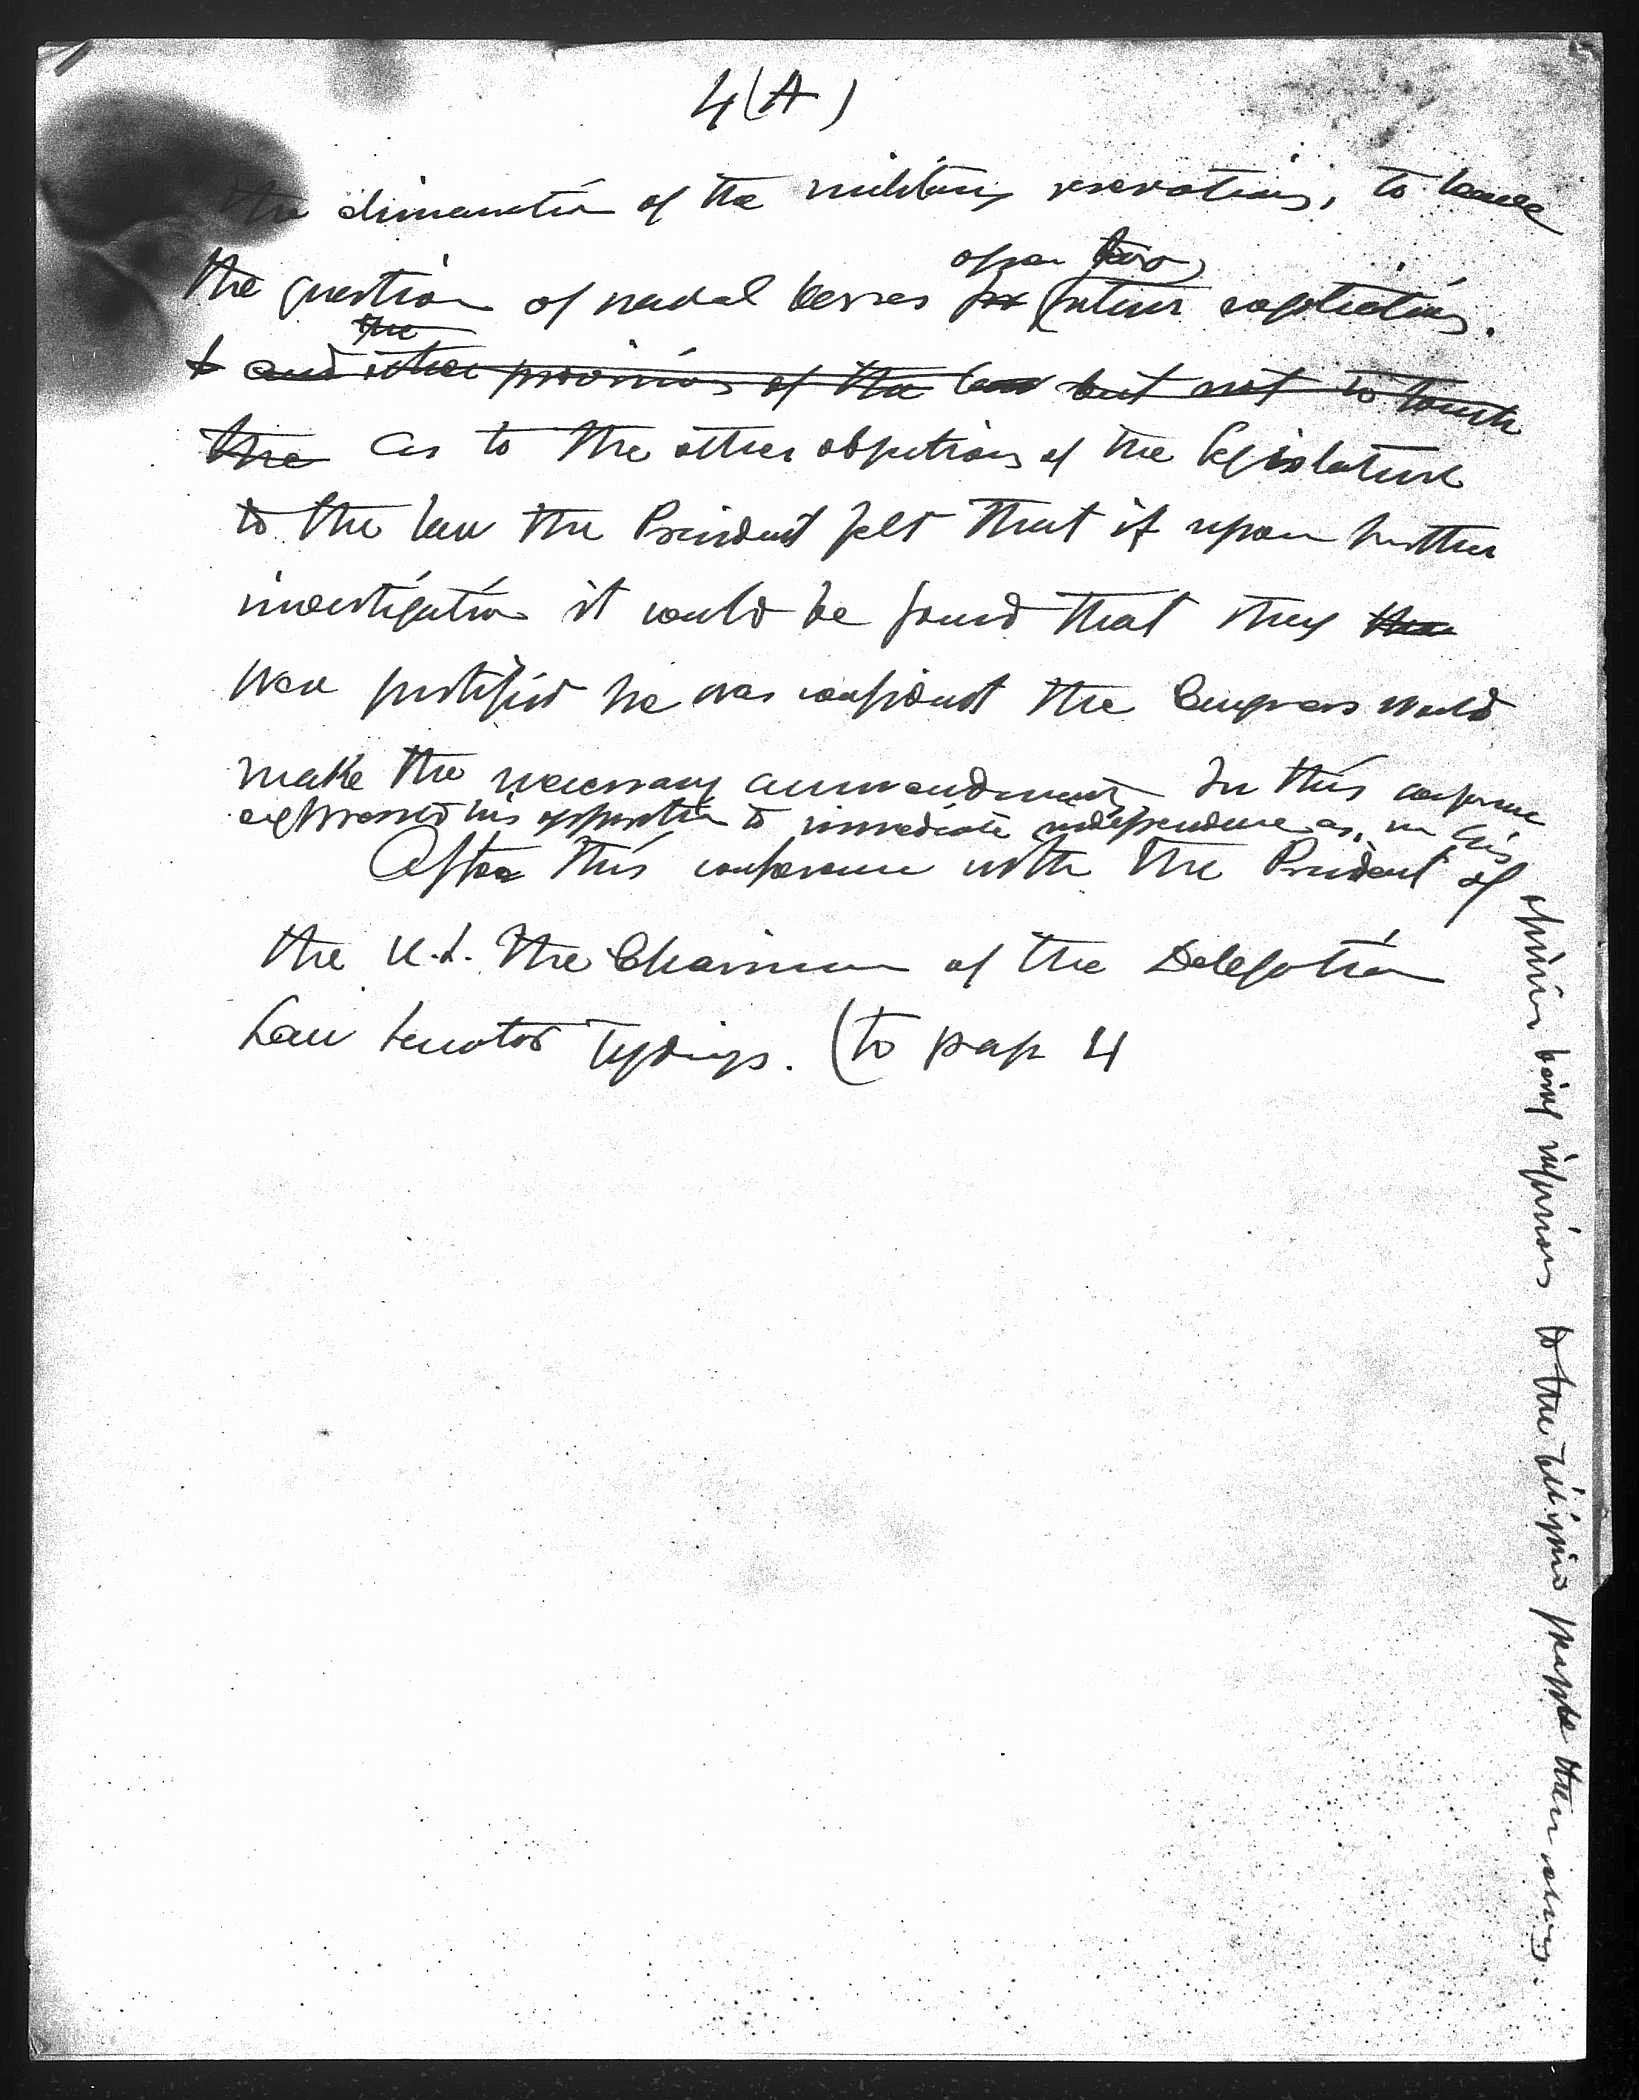 4(A)
the elimination of the military reservations, to leave
open two
the question of naval bases for future negotiations.
the
& and other provisions of the law but not to touch
the as to the other objections of the Legislature
to the law the President felt that if upon further
investigation it would be found that they
were justified he was confident the Congress would
make the necessary ammendments In this conference
expressed his opposition to immediate independence as, in his
After this conference with the President of
the U.S. the Chairman of the Delegation
saw Senator Tydings. (to page 4
opinion being injurious to the Filipino people themselves.